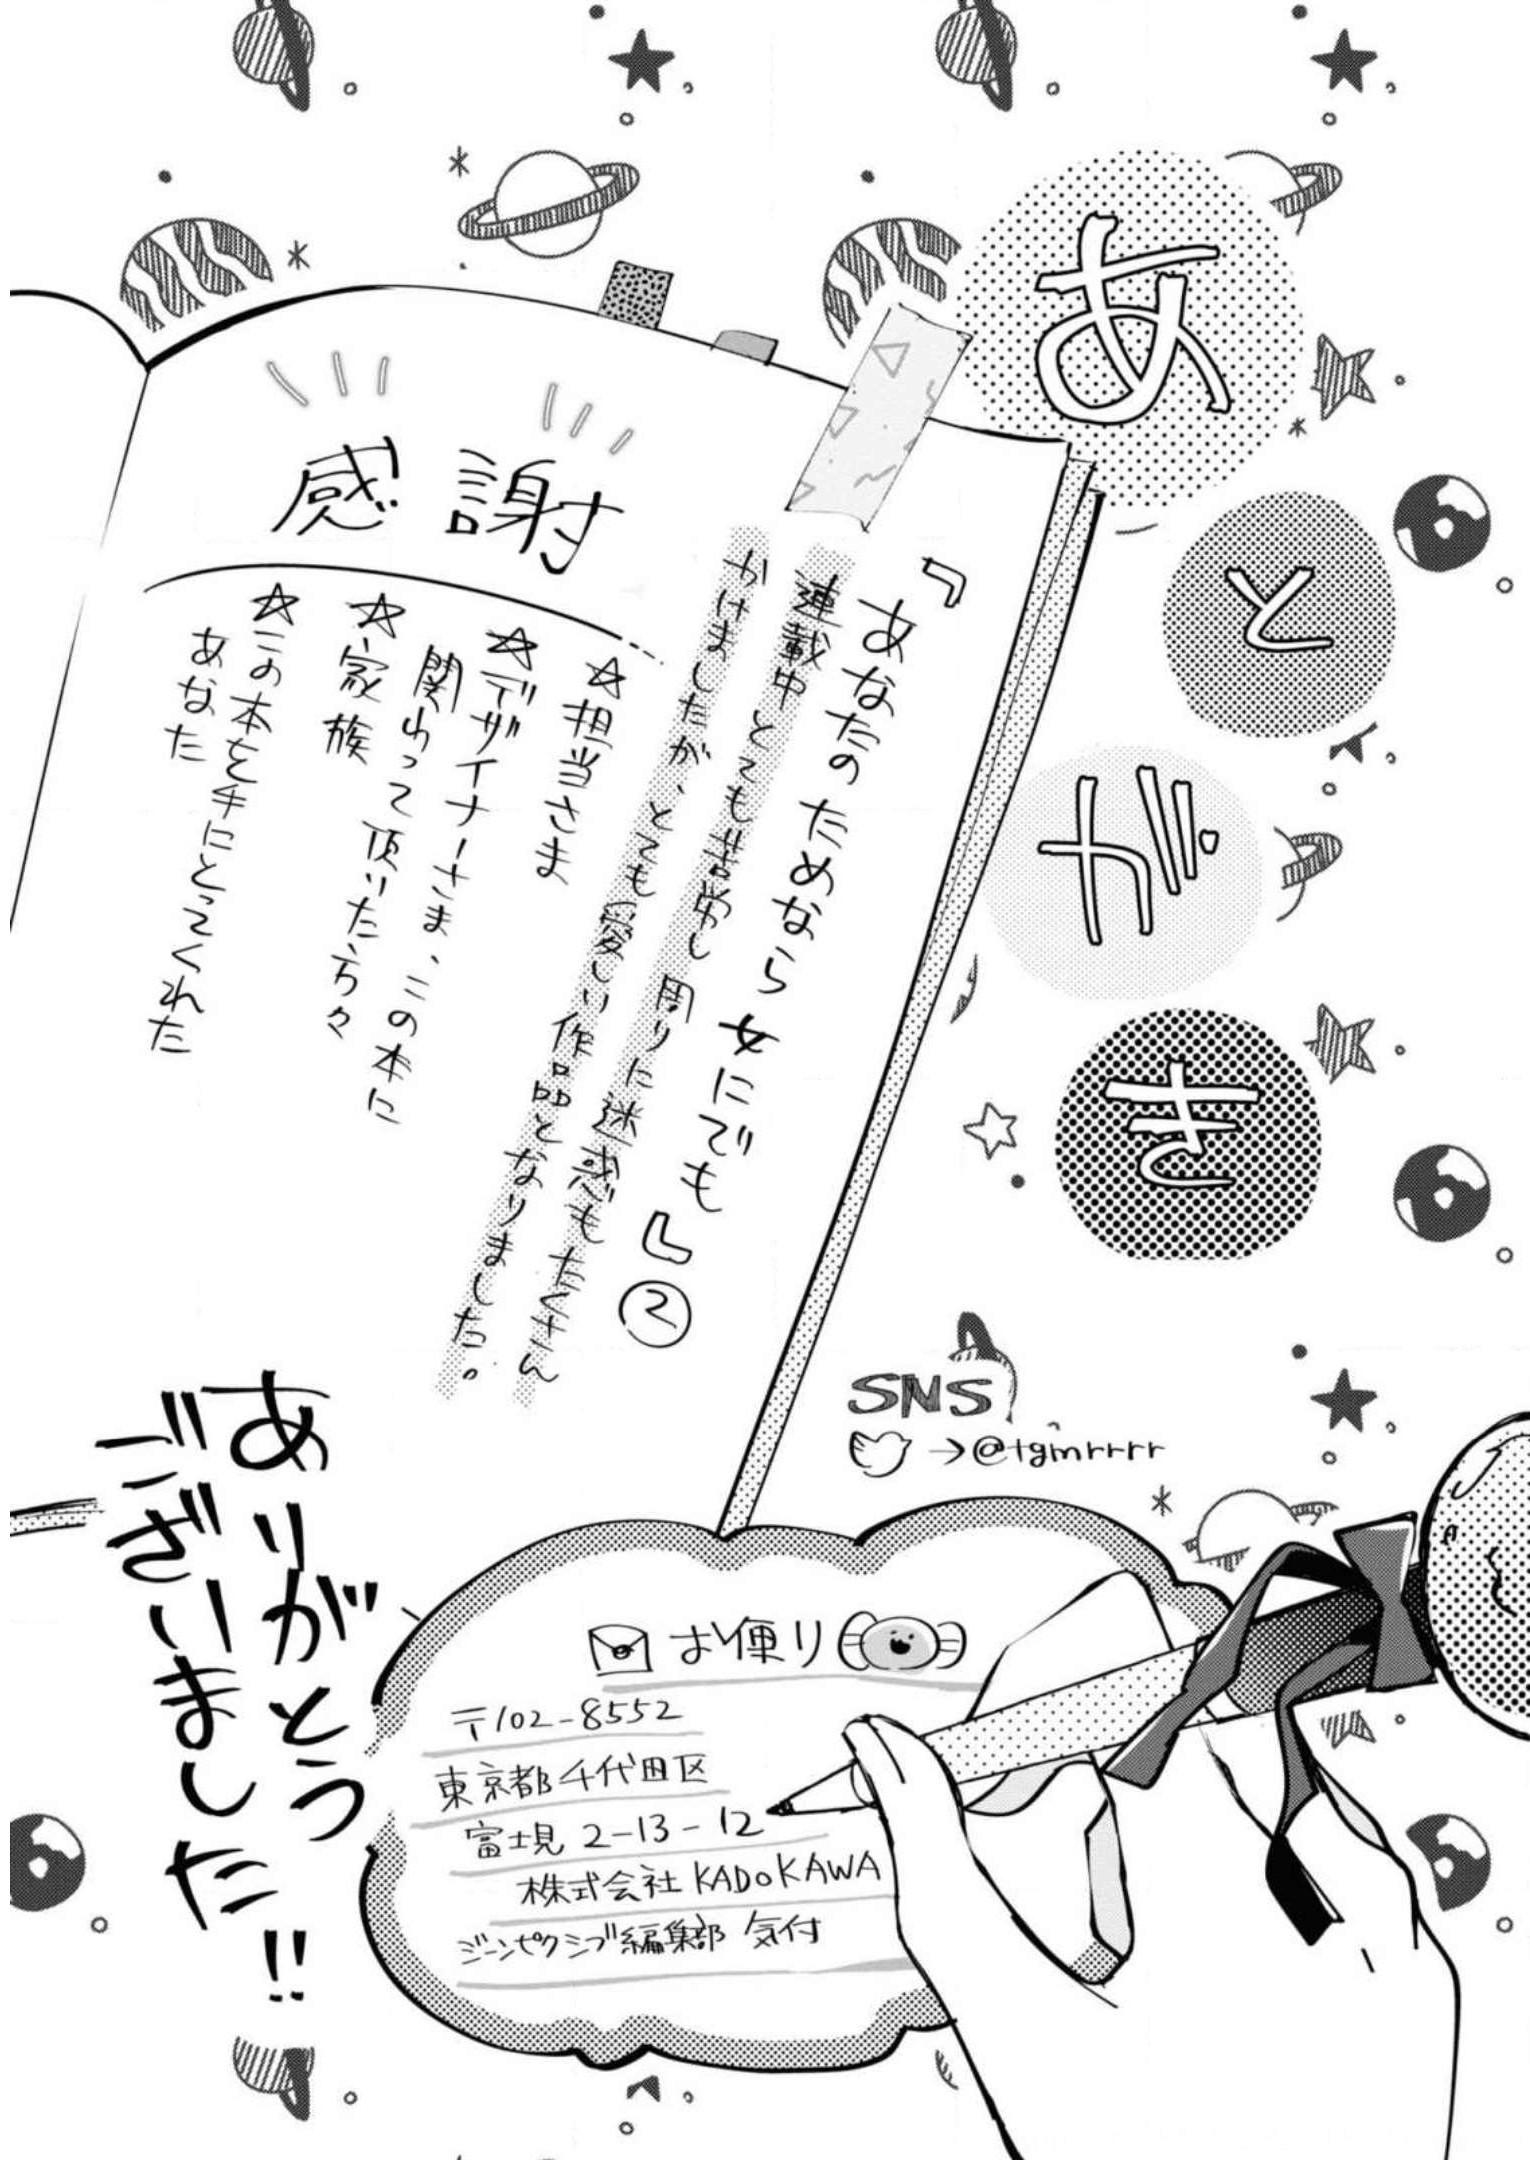 あとがき
『あなたのためなら女にでも』②
連載中とても苦労し周りに迷惑もたくさん
かけましたが、とても愛しい作品となりました。
感謝
☆担当さま
☆デザイナーさま、この本に
関わって頂いた方々
☆家族
☆この本を手にとってくれた
あなた
ありがとう
ございました!!
SNS
→@tgmrrrr
お便り
〒102-8552
東京都千代田区
富士見 2-13-12
株式会社KADOKAWA
ジーンピクシブ編集部 気付